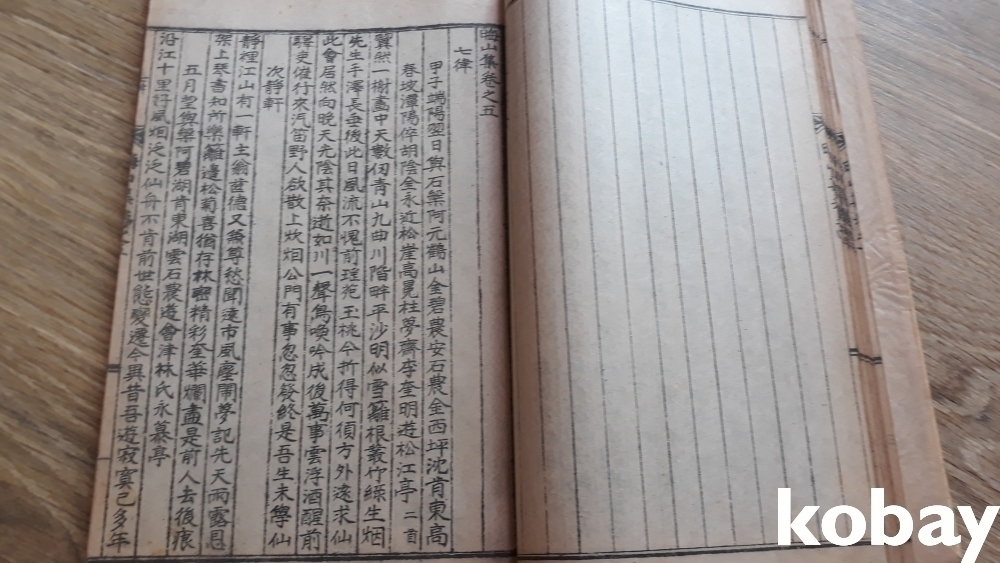 晦山集卷之五
七律
甲子端陽翌日與石槃阿元鶴山金碧農安石農金西坪沈肯東高
春坡潭陽倅胡陰金永近松崖高晃柱夢齋李奎明遊松江亭 二首
翼然一榭畵中天數仞青山九曲川階畔平沙明似雪籬根叢竹綠生烟
先生手澤長垂後此日風流不愧前瑤苑玉桃今折得何須方外遠求仙
此會居然向晚天光陰其奈逝如川一聲鳥喚吟成後萬事雲浮酒醒前
驛吏催行來汽笛野人欲散上炊烟公門有事忽忽發終是吾生未學仙
次靜軒
靜裡江山有一軒主翁齒德又兼尊愁聞遠市風塵鬧夢記先天雨露恩
架上琴書知所樂籬邊松菊喜猶存林密精彩奎華爛盡是前人去後痕
五月望與槃阿碧湖肯東湖雲石農遊會津林氏永慕亭
沿江十里好風烟泛泛仙舟不肯前世態變遷今與昔吾遊寂寞已多年
kobay